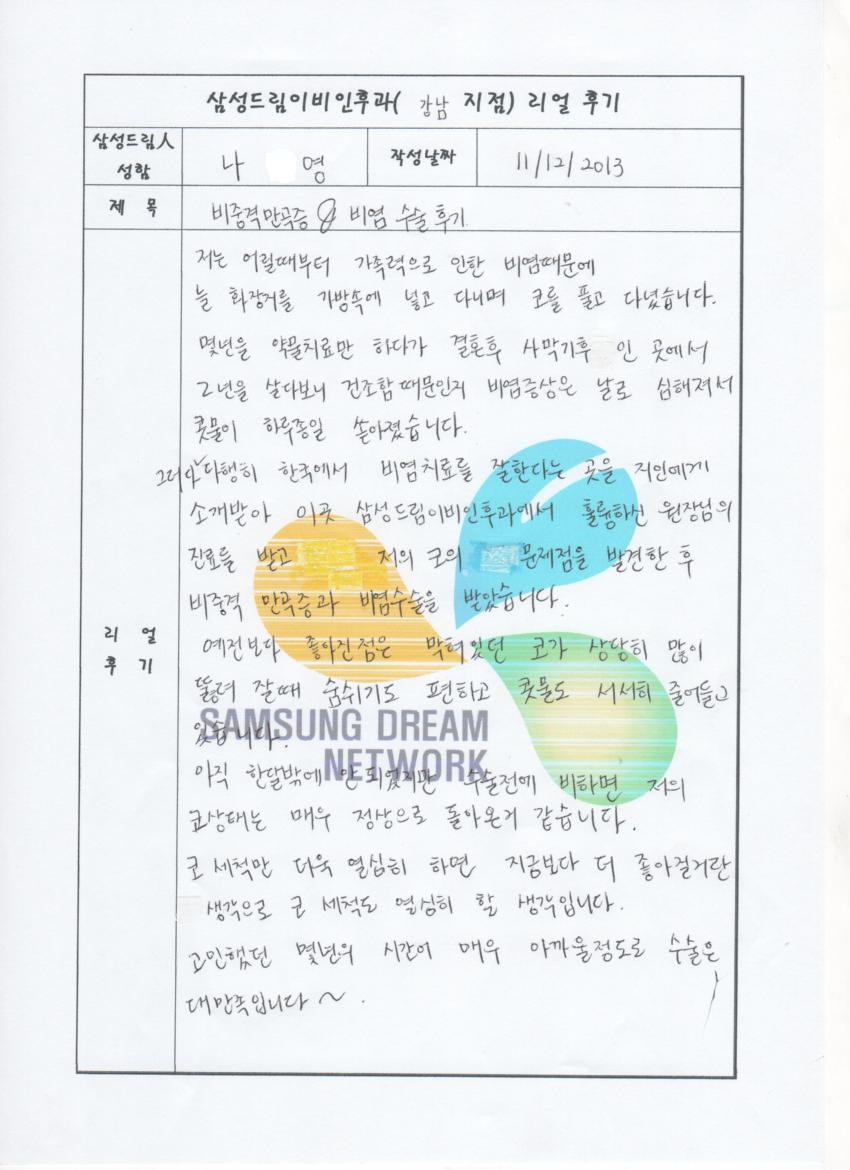 삼성드림이비인후과( 강남 지점) 리얼 후기
삼성드림人 성함
나 영
작성날짜
11/12/2013
제 목
비중격만곡증 & 비염 수술 후기.
리 얼 후 기
저는 어릴때부터 가족력으로 인한 비염때문에
늘 화장거를 가방속에 넣고 다니며 코를 풀고 다녔습니다.
몇년을 약물치료만 하다가 결혼후 사막기후 인 곳에서
2년을 살다보니 건조함때문인지 비염증상은 날로 심해져서
콧물이 하루종일 쏟아졌습니다.
그러나 다행히 한국에서 비염치료를 잘한다는 곳을 지인에게
소개받아 이곳 삼성드림이비인후과에서 훌륭하신 원장님의
진료를 받고 저의 코의 문제점을 발견한 후
비중격 만곡증과 비염수술을 받았습니다.
예전보다 좋아진점은 막혀있던 코가 상당히 많이
뚫려 잘때 숨쉬기도 편하고 콧물도 서서히 줄어들고
있습니다.
SAMSUNG DREAM
NETWORK
아직 한달밖에 안되었지만 수술전에 비하면 저의
코상태는 매우 정상으로 돌아온거 같습니다.
코 세척만 더욱 열심히 하면 지금보다 더 좋아질거란
생각으로 코 세척도 열심히 할 생각입니다.
고민했던 몇년의 시간이 매우 아까울정도로 수술은
대만족입니다~.